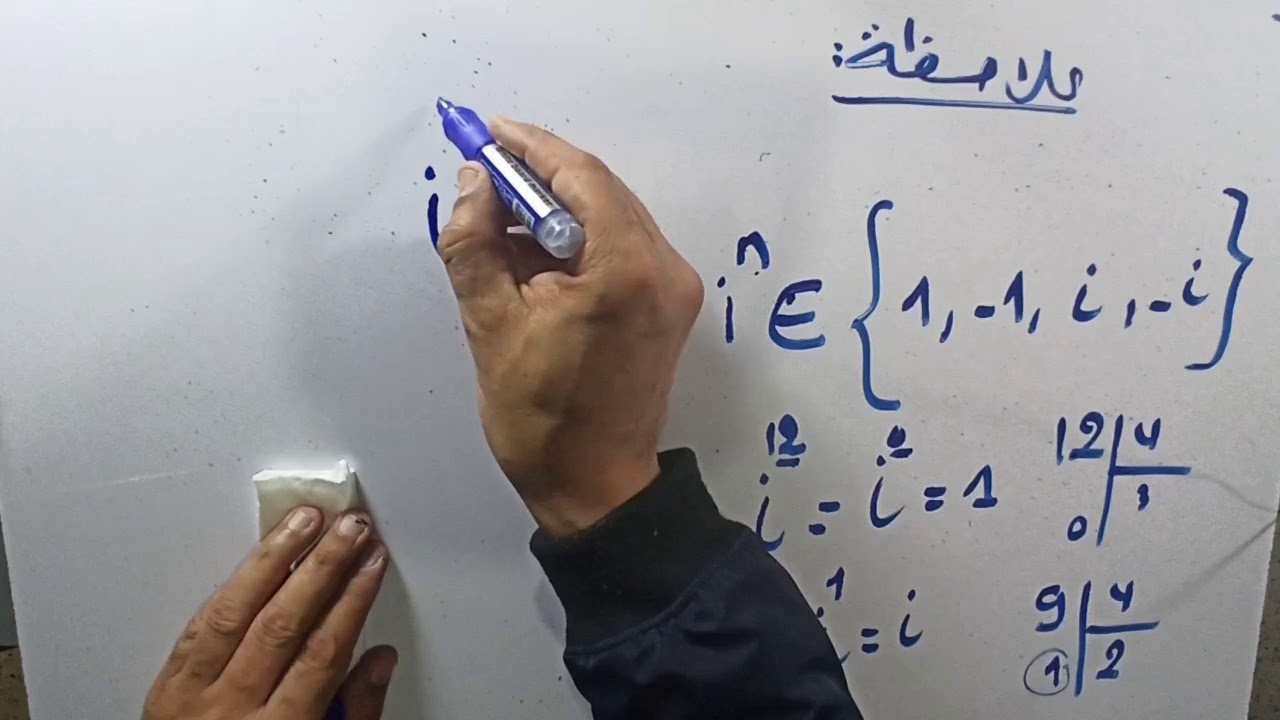 ملاحظة:
i
iⁿ ∈ {1, -1, i, -i}
i¹² = i⁰ = 1
12 | 4
0 | 3
i¹ = i
9 | 4
1 | 2